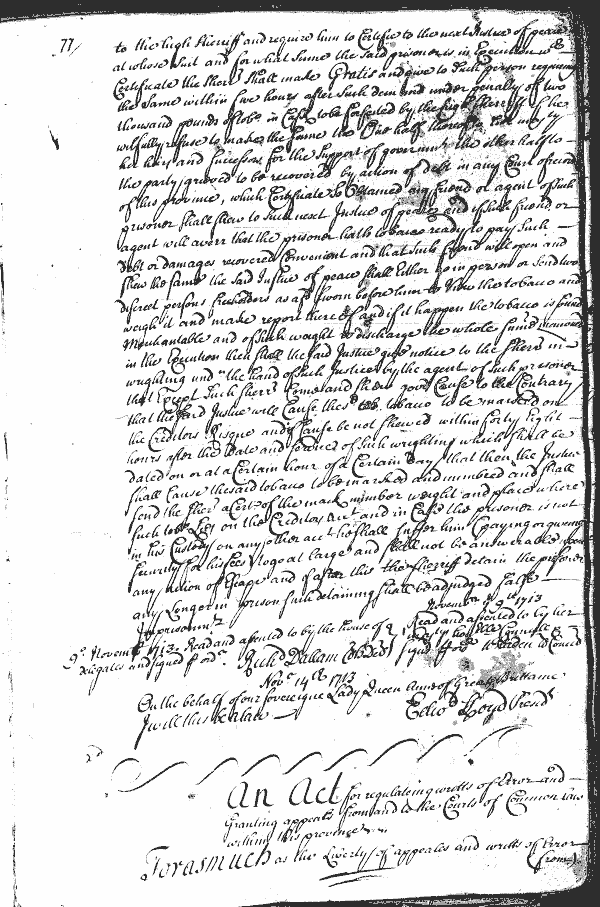 77/
to the high Sherriff and require him to Certifie to the next Justice of peace
at whose Suit and for what Sume the said prisoner is in Execution wch
Certificate the Sherr shall make Gratis and give to Such person requireing
the Same within five hours after Such demand under penalty of two
thousand pounds of tobo in Cask to be forfeited by the high Sherriff if he
wilfully refuse to make the Same the One half thereof to her majty
her heirs and Successors for the Support of governmt the other half to
the party grieved to be recovered by action of debt in any Court of record
of this province, which Certificate So Obtained any friend or agent of Such
prisoner shall shew to Such next Justice of peace and if Such friend or
agent will averr that the prisoner hath tobacco ready to pay Such
Debt or damages recovered Convenient and that Such friend will open and
shew the Same the said Justice of peace shall Either go in person or Send two
discreet persons freeholders as afd Sworn before him to View the tobacco and
weigh it and make report thereof and if it happen the tobacco is found
Merchantable and of Such weight to discharge the whole Sume menconed
in the Execution then shall the said Justice give notice to the Sherr in
wrighting undr the hand of Such Justice by the agent of Such prisoner
that Except Such Sherr Come and shew good Cause to the Contrary
that the said Justice will Cause the sd tobacco to be marked on
the Creditors Risque and if Cause be not shewed within forty Eight
hours after the Date and Service of Such wrighting which shall be
dated on or at a Certain hour of a Certain Day that then the Justice
shall Cause the said tobacco to be marked and numbred and shall
send the Sher a Cert of the mark number weight and place where
such tobo Lies on the Creditors acct and in Case the prisoner is not
in his Custody on any other acct he shall Suffer him (paying or giveing
Security for his fees) to go at large and shall not be answerable
any action of Escape and if after this the Sherriff detain the prisoner
any Longer in prison such detaining shall be adjudged false
Imprisonmt
9o November 1713. Read and assented to by the house of
delegates and signed p ordr Richd Dallam Cl hs Del
Novembr 9th 1713
Read and assented to by her
majtys honble Councill
signd p ordr W Bladen Cl Councl
Novr 14th 1713
On the behalf of our Sovereigne Lady Queen Anne of Great Brittaine
I will this be a law
Edwd Lloyd Presdt
An Act for regulateing writts of Error and
Granting appeals from and to the Courts of Common law
within this province
Forasmuch as the Liberty of appeales and writts of Error
(from)